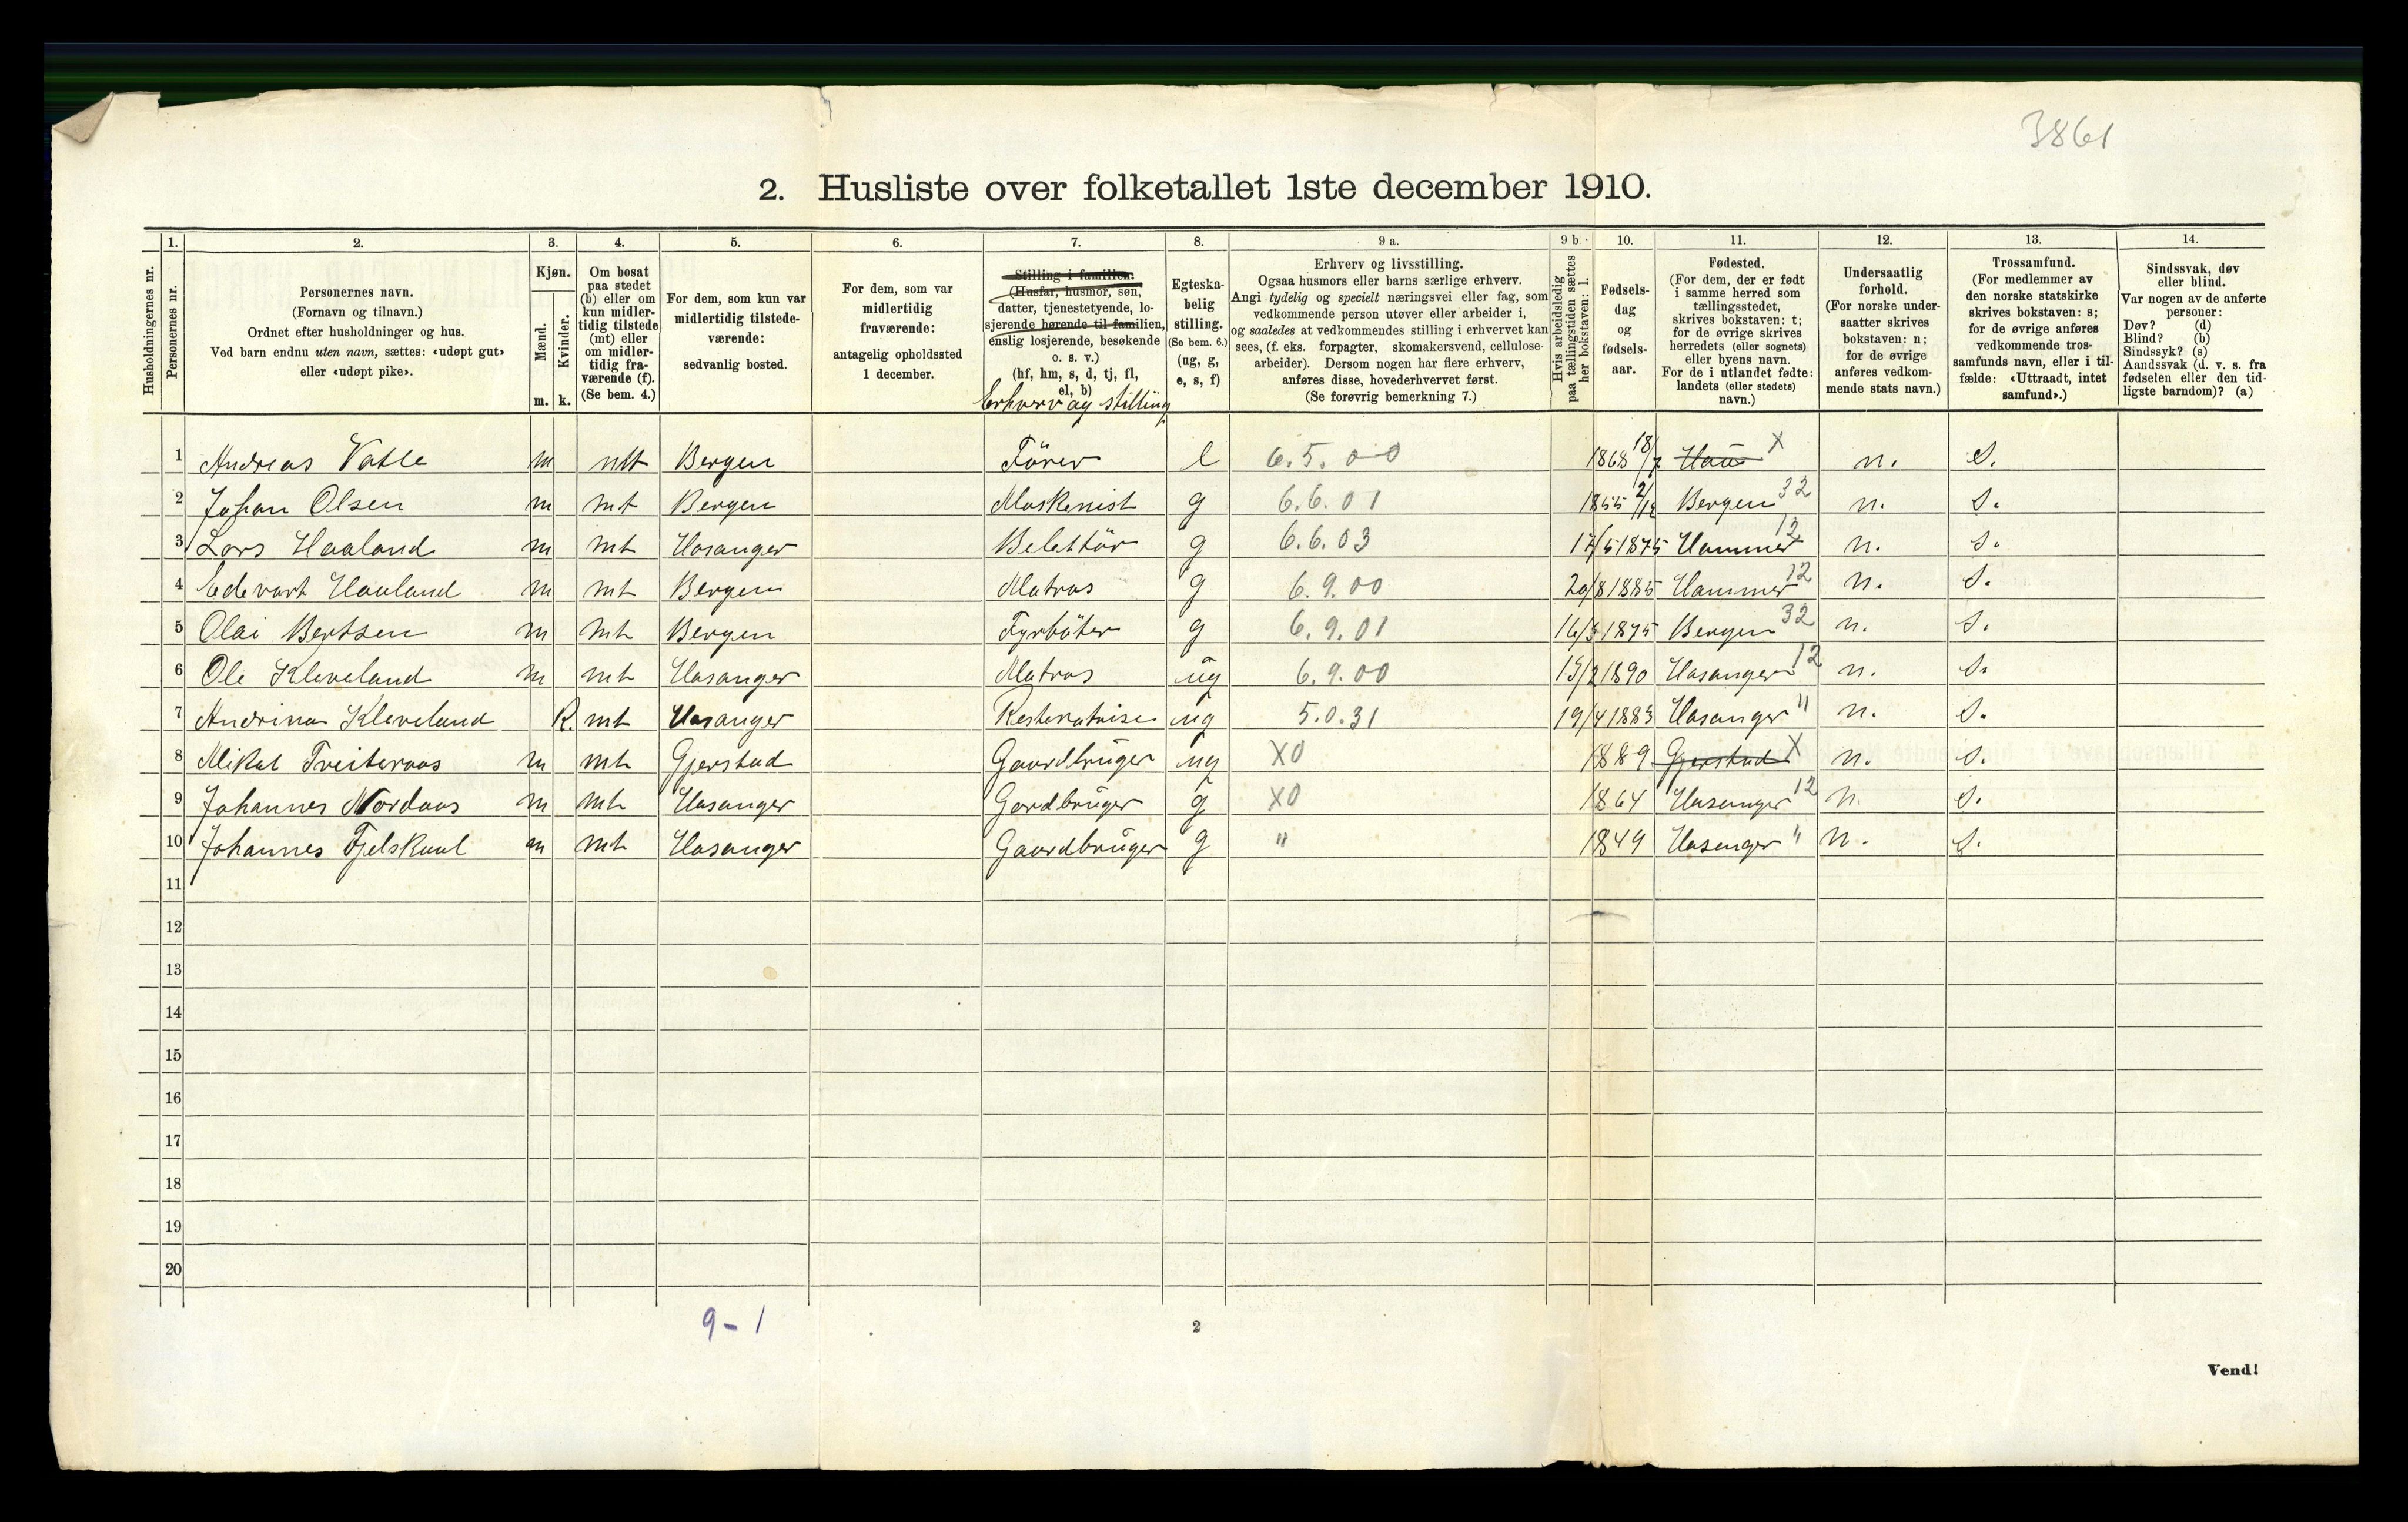 3861
2. Husliste over folketallet 1ste december 1910.
1. 2. 3. 4. 5. 6. 7. 8. 9 a. 9 b. 10. 11. 12. 13. 14.
Husholdningernes nr.
Personernes nr.
Personernes navn.
(Fornavn og tilnavn.)
Ordnet efter husholdninger og hus.
Ved barn endnu uten navn, sættes: «udøpt gut»
eller «udøpt pike».
Kjøn.
Mænd.
Kvinder.
m. k.
Om bosat
paa stedet
(b) eller om
kun midler-
tidig tilstede
(mt) eller
om midler-
tidig fra-
værende (f).
(Se bem. 4.)
For dem, som kun var
midlertidig tilstede-
værende:
sedvanlig bosted.
For dem, som var
midlertidig
fraværende:
antagelig opholdssted
1 december.
Stilling i familien.
(Husfar, husmor, søn,
datter, tjenestetyende, lo-
sjerende hørende til familien,
enslig losjerende, besøkende
o. s. v.)
(hf, hm, s, d, tj, fl,
el, b)
Erhverv og stilling
Egteska-
belig
stilling.
(Se bem. 6.)
(ug, g,
e, s, f)
Erhverv og livsstilling.
Ogsaa husmors eller barns særlige erhverv.
Angi tydelig og specielt næringsvei eller fag, som
vedkommende person utøver eller arbeider i,
og saaledes at vedkommendes stilling i erhvervet kan
sees, (f. eks. forpagter, skomakersvend, cellulose-
arbeider). Dersom nogen har flere erhverv,
anføres disse, hovederhvervet først.
(Se forøvrig bemerkning 7.)
Hvis arbeidsledig
paa tællingstiden sættes
her bokstaven: l.
Fødsels-
dag
og
fødsels-
aar.
Fødested.
(For dem, der er født
i samme herred som
tællingsstedet,
skrives bokstaven: t;
for de øvrige skrives
herredets (eller sognets)
eller byens navn.
For de i utlandet fødte:
landets (eller stedets)
navn.)
Undersaatlig
forhold.
(For norske under-
saatter skrives
bokstaven: n;
for de øvrige
anføres vedkom-
mende stats navn.)
Trossamfund.
(For medlemmer av
den norske statskirke
skrives bokstaven: s;
for de øvrige anføres
vedkommende tros-
samfunds navn, eller i til-
fælde: «Uttraadt, intet
samfund».)
Sindssvak, døv
eller blind.
Var nogen av de anførte
personer:
Døv? (d)
Blind? (b)
Sindssyk? (s)
Aandssvak (d. v. s. fra
fødselen eller den tid-
ligste barndom)? (a)
1 Andreas Vatle m mt Bergen Förer e 6.5.00 1868 18/7 Haus X n. S.
2 Johan Olsen m mt Bergen Maskenist g 6.6.01 1855 2/12 Bergen 32 n. S.
3 Lars Haaland m mt Hosanger Belettör g 6.6.03 17/5 1875 Hammer 12 n. S.
4 Edevart Haaland m mt Bergen Matros g 6.9.00 20/8 1885 Hammer 12 n. S.
5 Olai Bertsen m mt Bergen Fyrböter g 6.9.01 16/3 1875 Bergen 32 n. S.
6 Ole Kleveland m mt Hosanger Matros ug 6.9.00 15/2 1890 Hosanger 12 n. S.
7 Andrina Kleveland k. mt Hosanger Restoratrise ug 5.0.31 19/4 1883 Hosanger " n. S.
8 Mikal Treiteraas m mt Gjerstad Gaardbruger ug XO 1889 Gjerstad X n. S.
9 Johannes Nordaas m mt Hosanger Gardbruger g XO 1864 Hosanger 12 n. S.
10 Johannes Fjelskaal m mt Hosanger Gaardbruger g " 1849 Hosanger " n. S.
11
12
13
14
15
16
17
18
19
20
9 - 1
2
Vend!